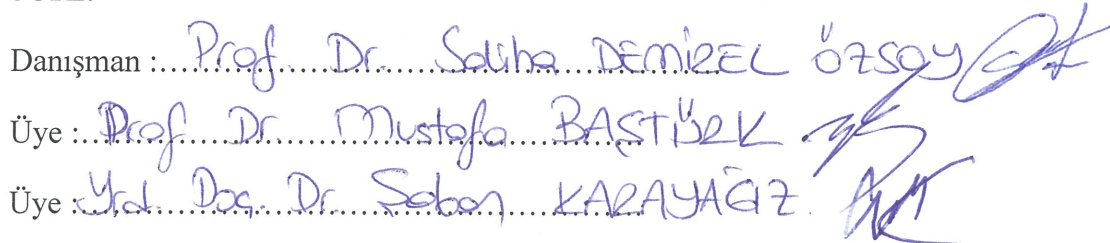 Danışman : Prof. Dr. Saliha DEMİREL ÖZSOY
Üye : Prof. Dr. Mustafa BAŞTÜRK
Üye : Yrd. Doç. Dr. Şaban KARAYAĞIZ